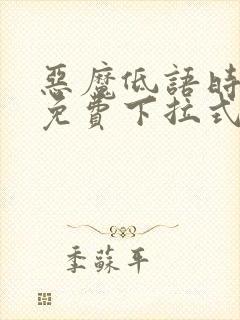 惡魔低語時
免費下拉式
季蘇平